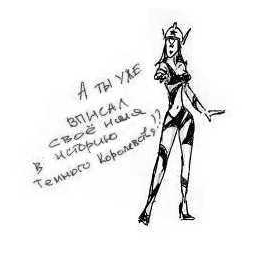 А ты уже
вписал
своё имя
в историю
Темного Королевства??